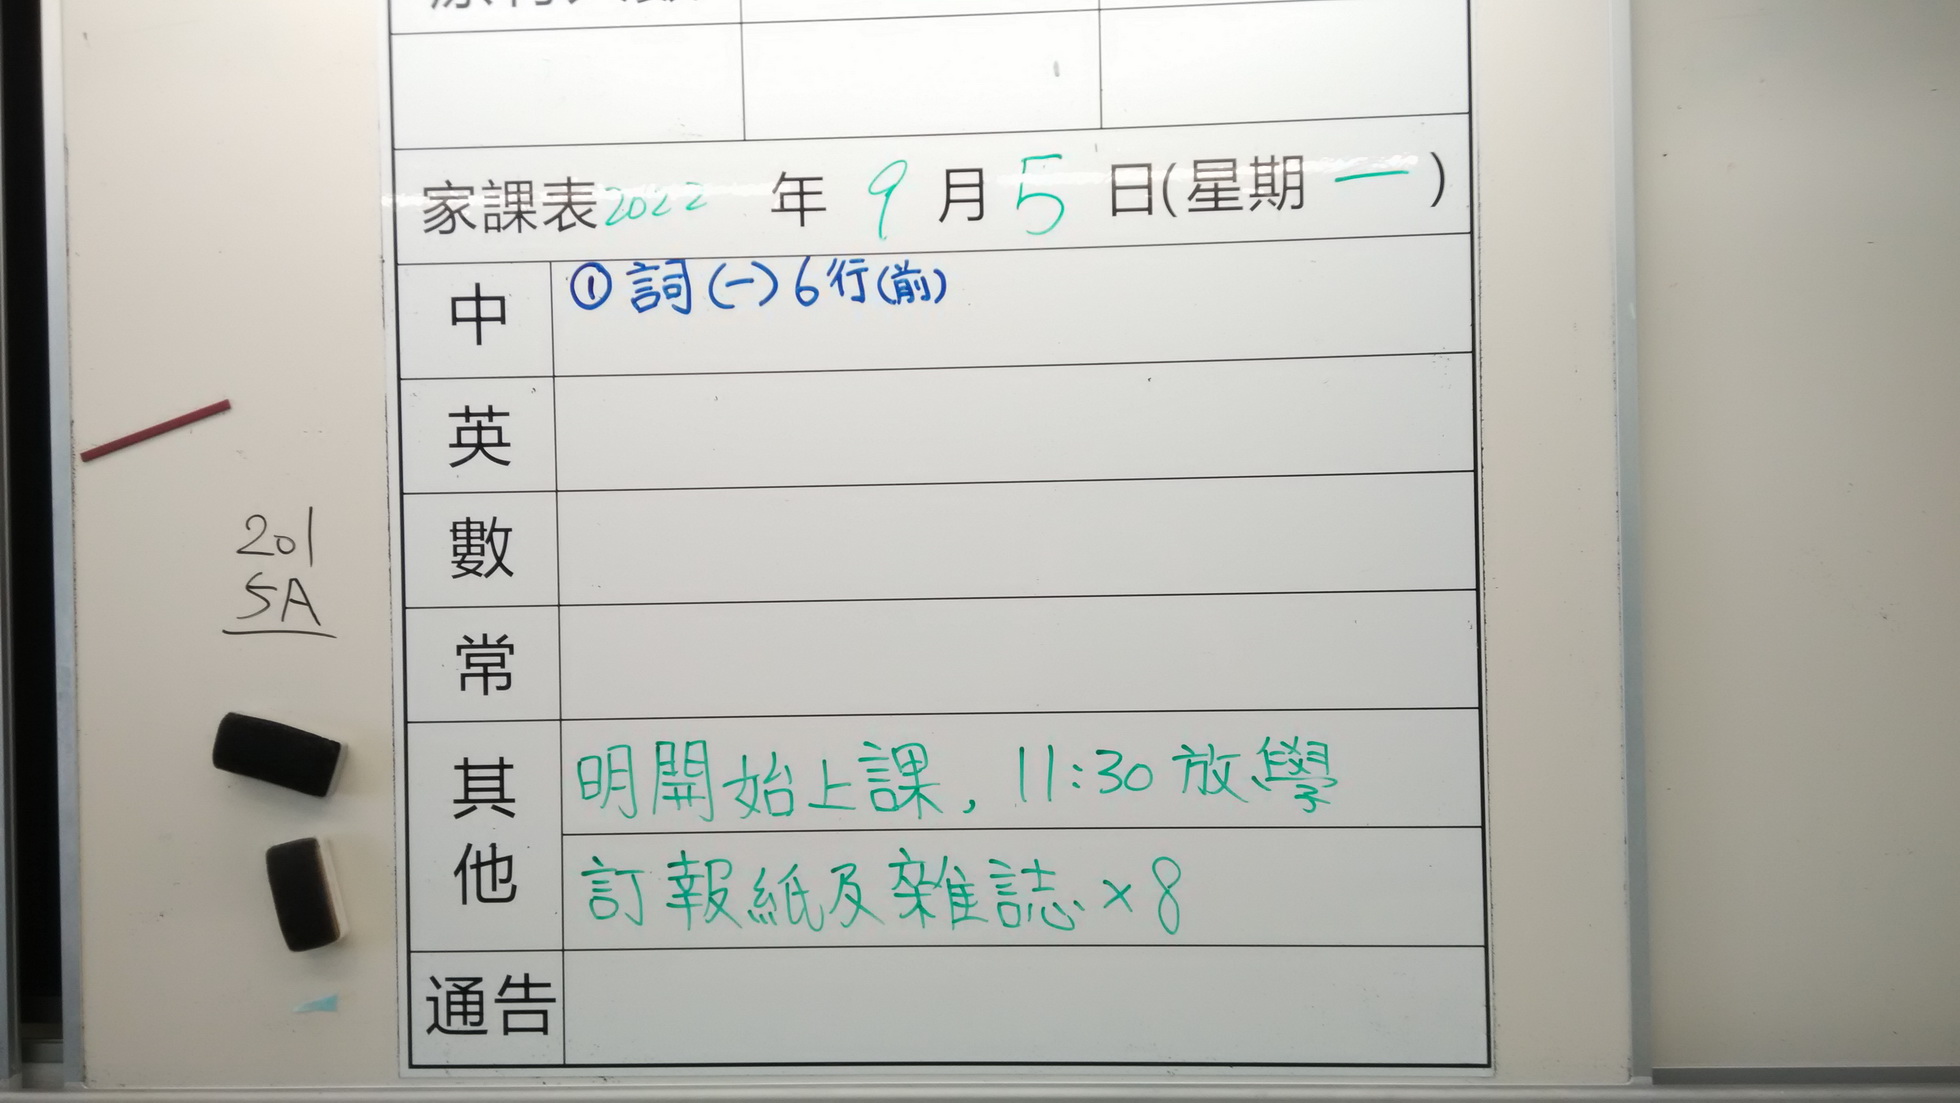 家課表2022 年 9 月 5 日(星期 一 )
中 ① 詞(一)6行(前)
英
數
常
其他 明開始上課, 11:30 放學
訂報紙及雜誌 x 8
通告
201
5A